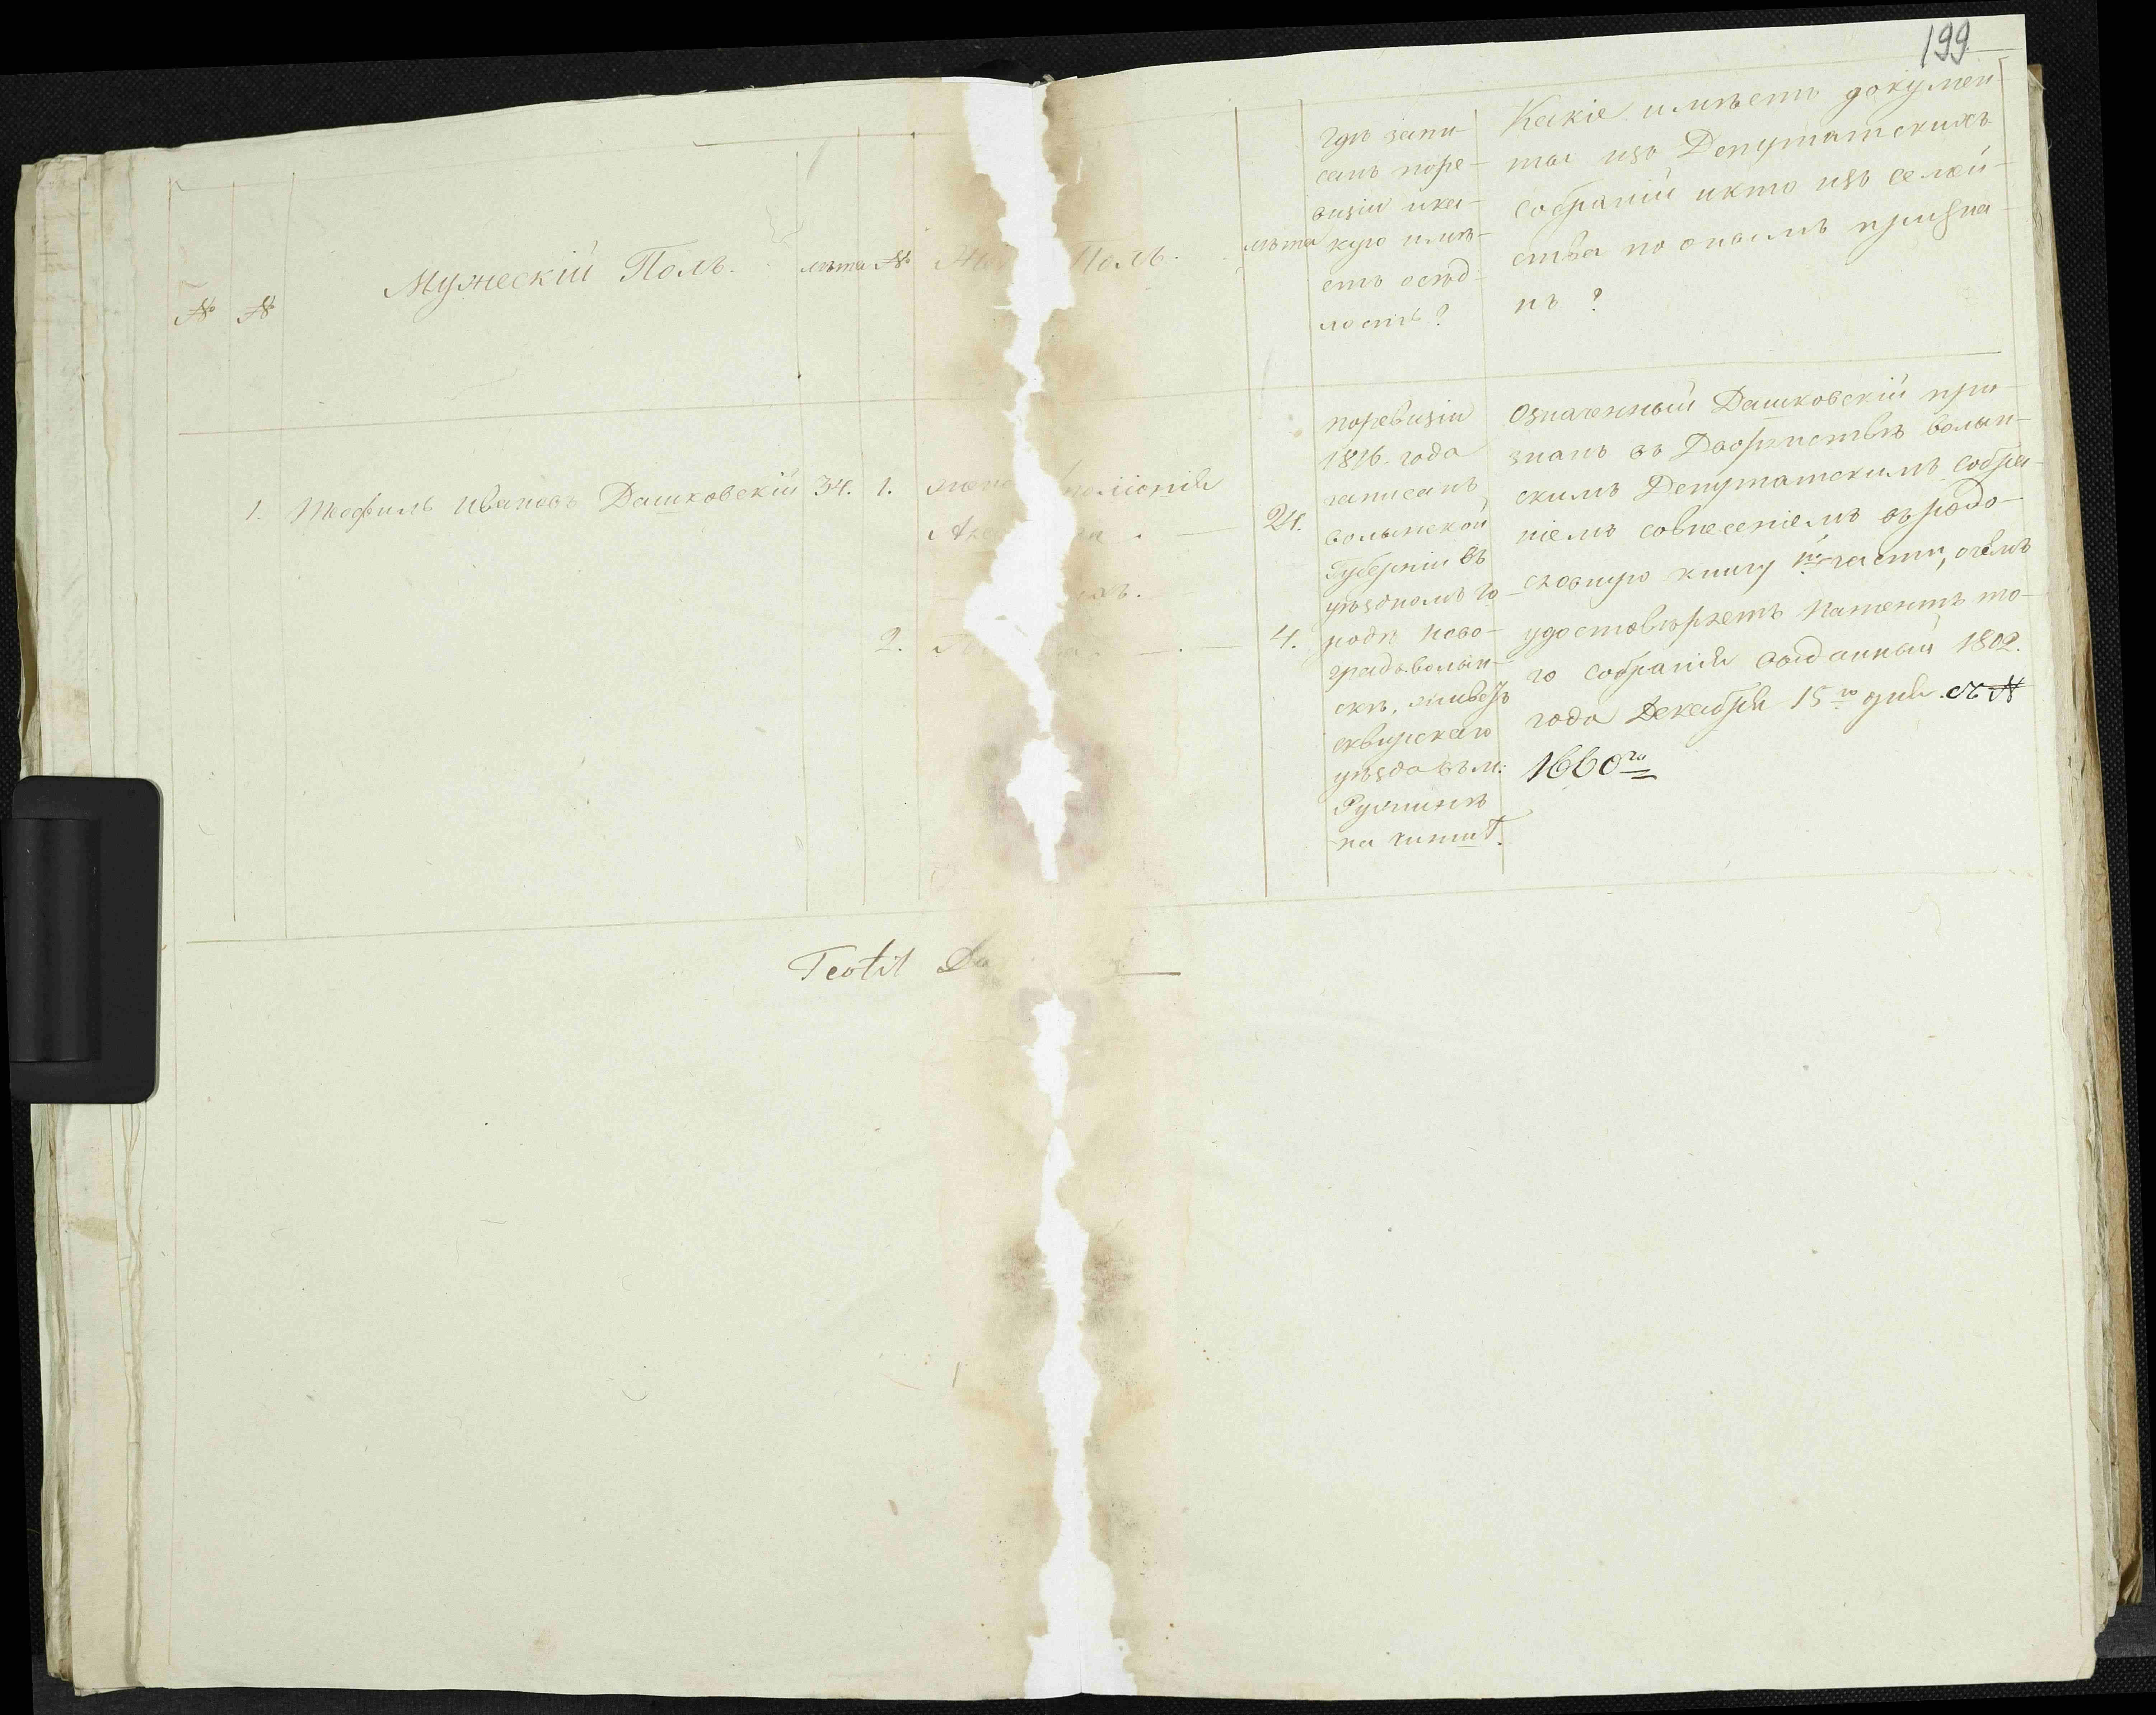 199
№
№
Мужескій Полъ.
лѣта
№
Полъ.
лѣта
гдѣ запи-
санъ поре-
визіи ика-
кую имѣ-
етъ осѣд-
лость?
Какіе имѣетъ докумен-
ты изъ Депутатскихъ
собраній икто изъ семей-
ства по онымъ призна-
нъ ?
1. Теофиль Ивановъ Дашковскій 34.
1.
24.
2.
4.
поревизіи
1816. года
записанъ
волынской
Губерніи въ
уѣздномъ го-
родѣ Ново-
градволын-
скѣ, живетъ
сквирскаго
уѣзда въ м:
Ружинѣ
на чиншѣ.
Означенный Дашковскій при-
знанъ въ Дворянствѣ волын-
скимъ Депутатскимъ собра-
ніемъ совнесеніемъ въ родо-
словную книгу части, очемъ
удостовѣряетъ Патентъ то-
го собранія выданный 1802.
года Декабря 15го дня. съ №
1660го
Teofil Da